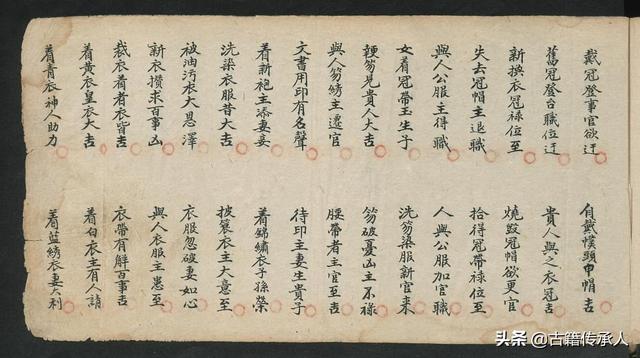 戴冠登事官欲迁
自戴幞頭巾帽吉
舊冠登台職位迁
貴人與之衣冠吉
新換衣冠禄位至
燒毁冠帽欲更官
失去冠帽主退職
拾得冠帶禄位至
與人公服主得職
人與公服加官職
女着冠帶玉生子
洗笏染服新官来
笏見貴人大吉
笏破憂凶主不禄
與人笏綉主遷官
腰帶者主官至吉
文書用印有名聲
待印主妻生貴子
着新袍主添妻妾
着錦繡衣子孫榮
洗染衣服昔大吉
披蓑衣主大意至
被油污衣大恩澤
衣服忽破妻如心
新衣攢求百事凶
與人衣服主患至
裁衣着者衣皆吉
衣帶有解百事吉
着黄衣皇衣大吉
着白衣主有人請
着青衣神人助力
着藍綉衣妻大利
头条 @古籍传承人